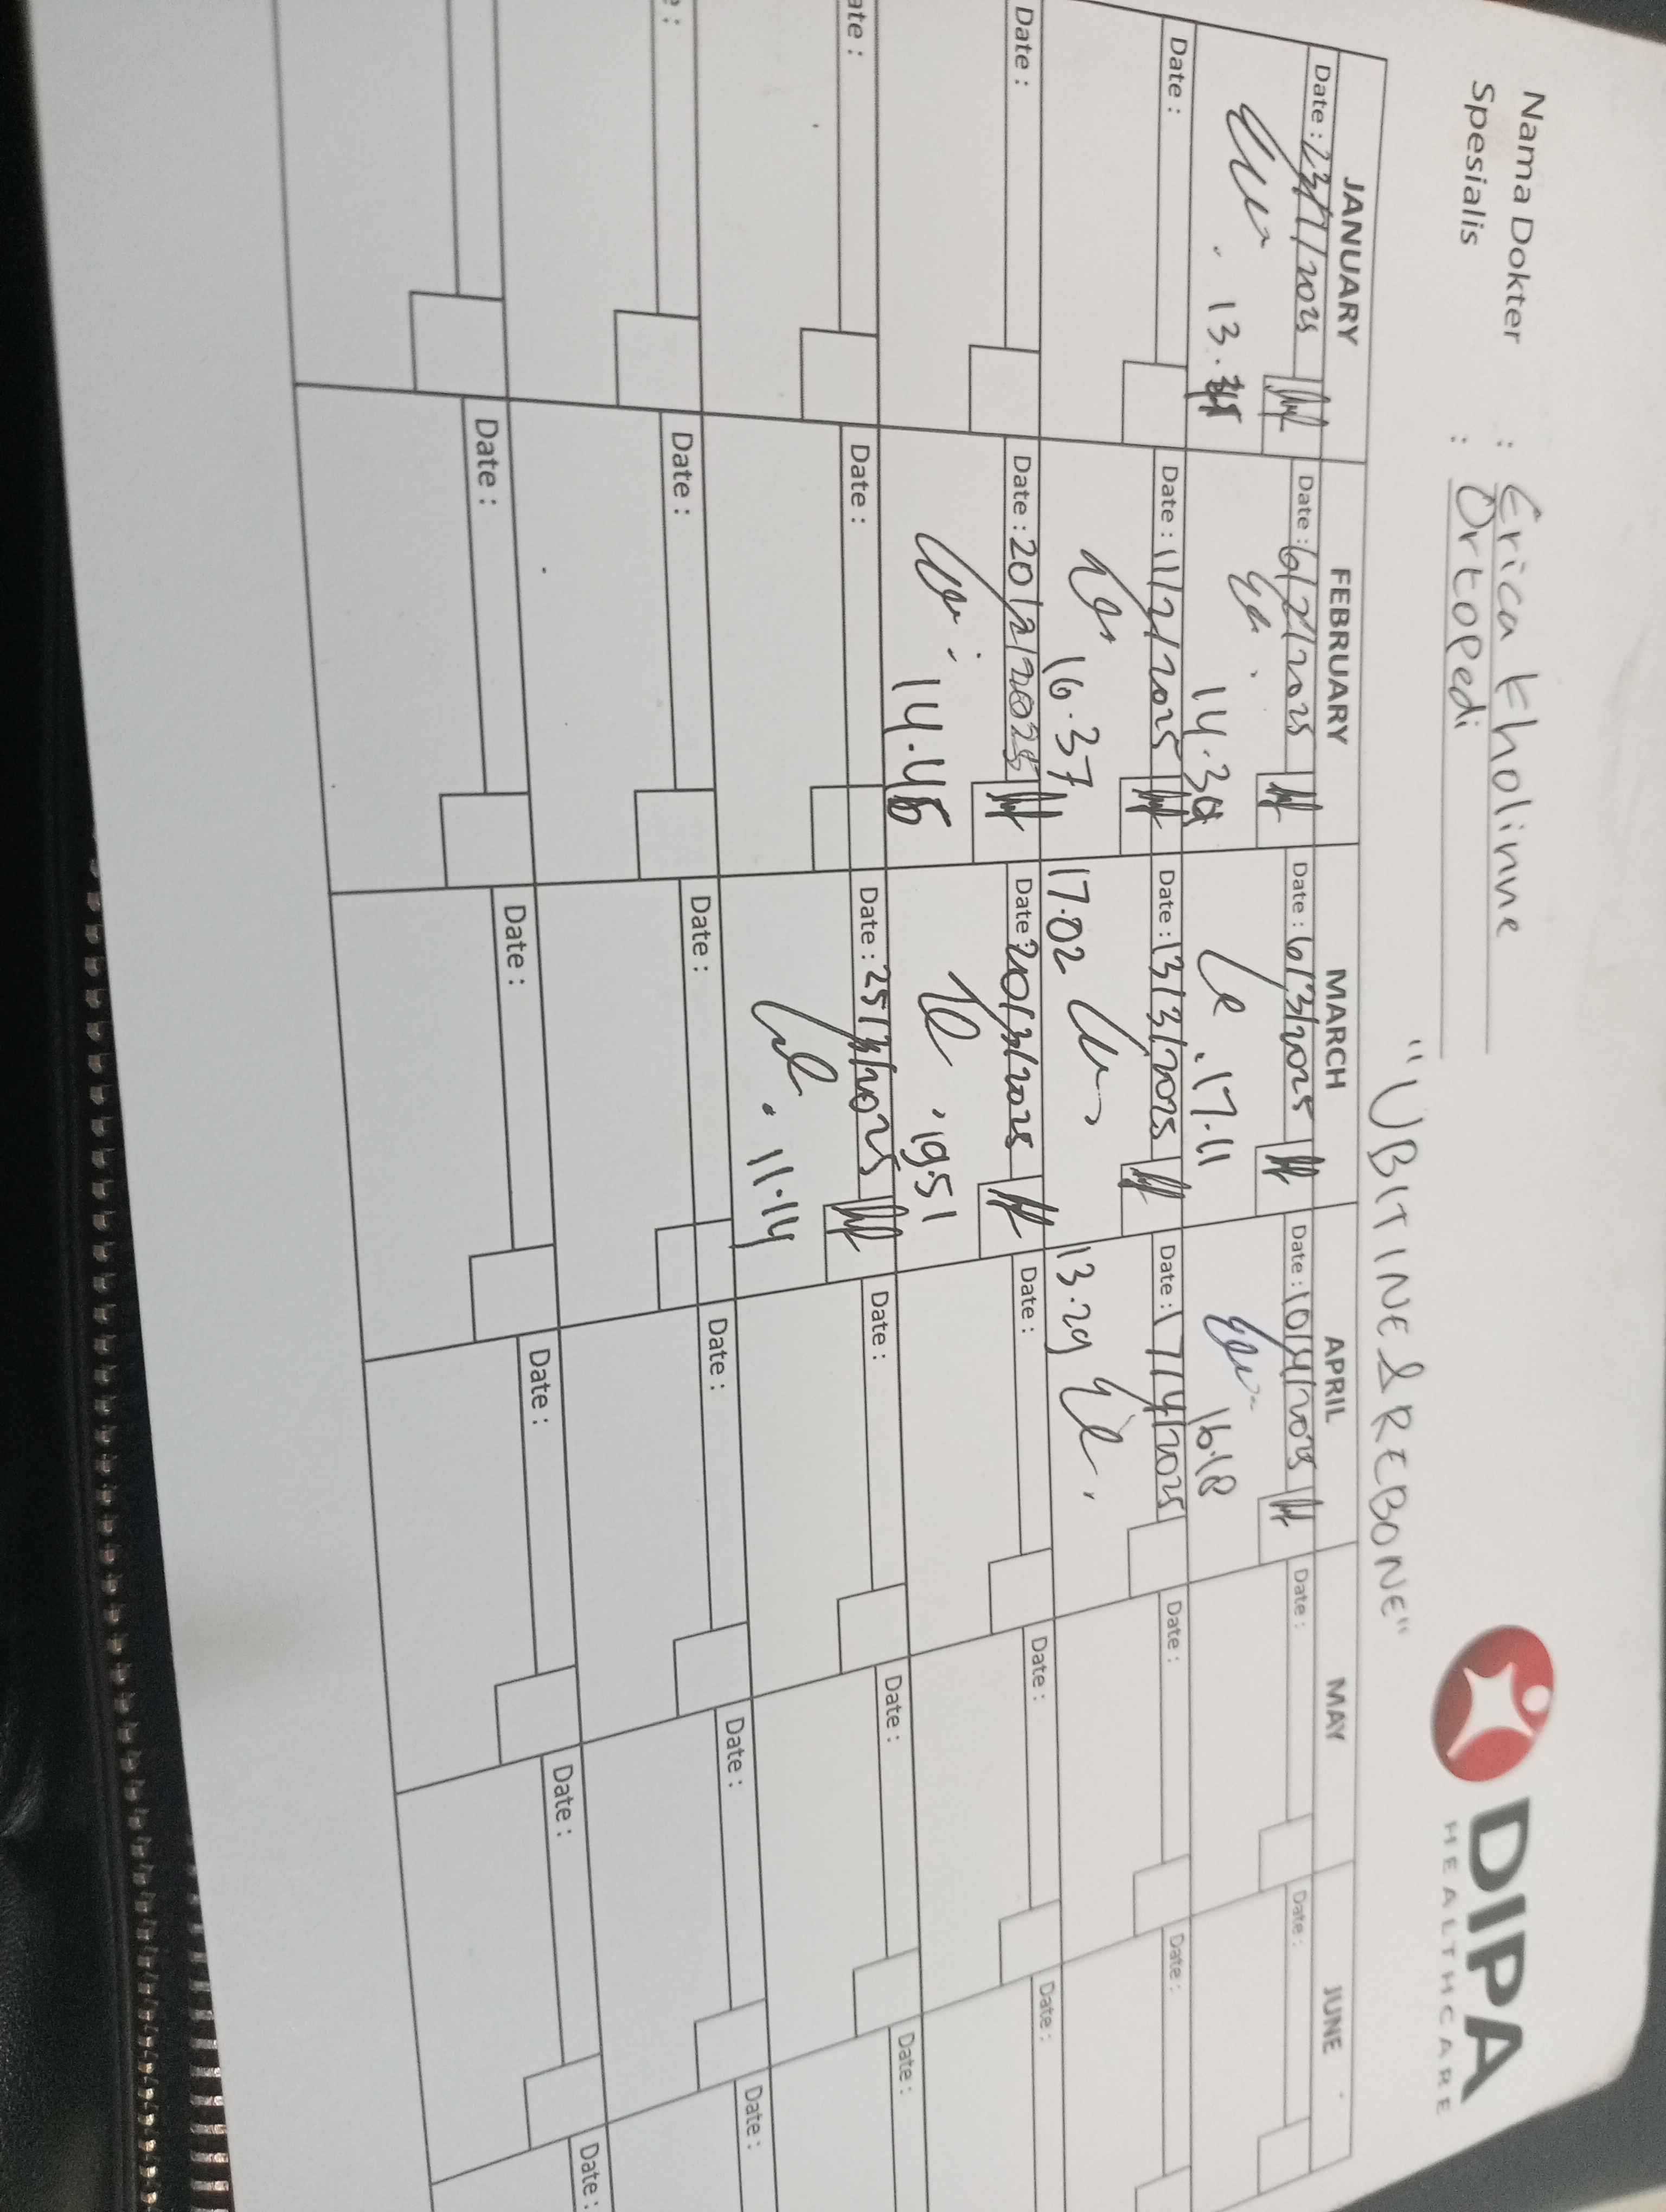 DIPA
HEALTHCARE
Nama Dokter : Erica Kholinne
Spesialis : Ortopedi
"UBITINE & REBONE"
JANUARY FEBRUARY MARCH APRIL MAY JUNE
Date : 23/1/2025 Date : 6/2/2025 Date : 6/3/2025 Date : 10/4/2025 Date : Date :
14.39 17.11 16.18
Date : Date : 11/2/2025 Date : 13/3/2025 Date : 17/4/2025 Date : Date :
16.37 17.02 13.29
Date : Date : 20/2/2025 Date : 20/3/2025 Date : Date : Date :
14.45 19.51
ate : Date : Date : 25/3/2025 Date : Date : Date :
11.14
e : Date : Date : Date : Date : Date :
Date : Date : Date : Date : Date :